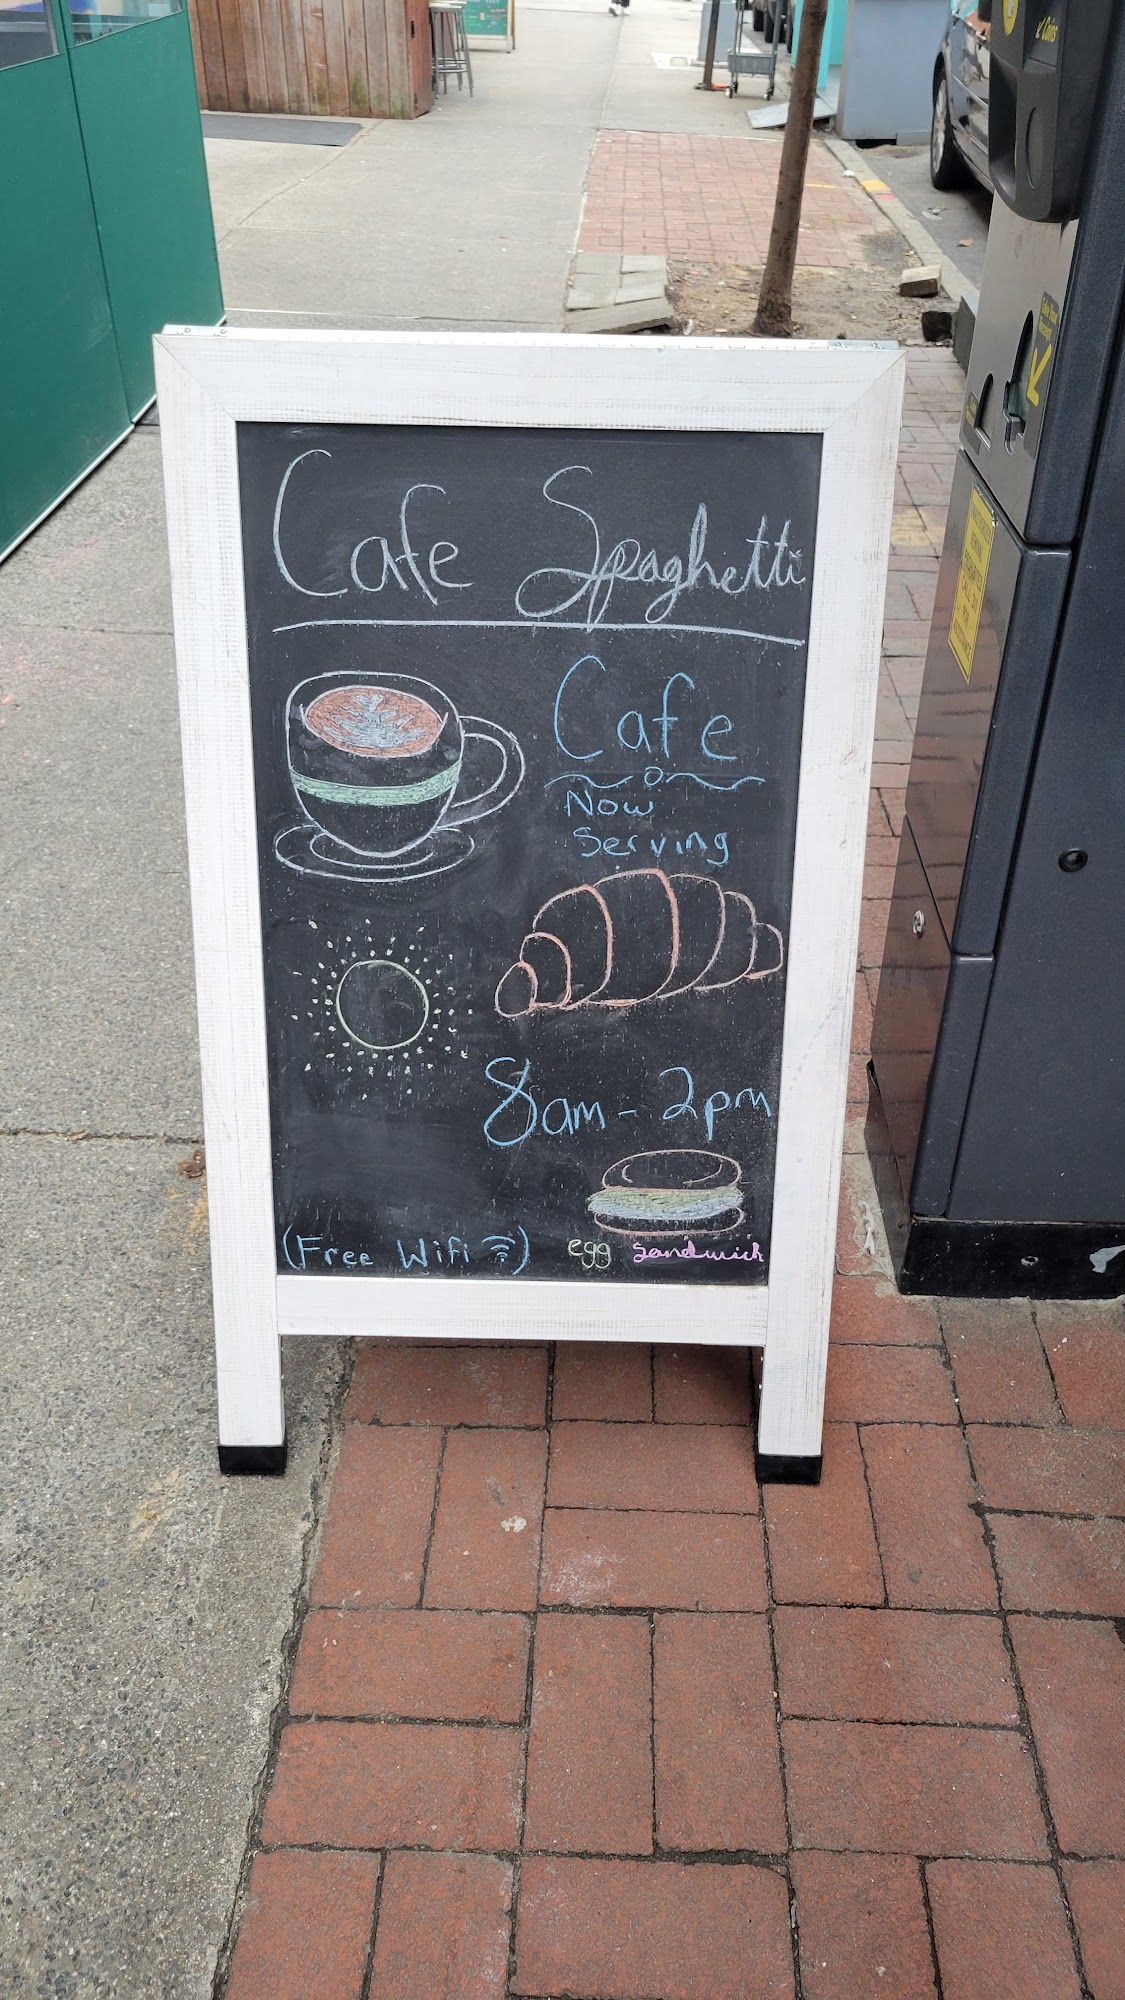 Cafe Spaghetti
Cafe
Now
Serving
8am - 2pm
(Free Wifi)
egg sandwich
Coins